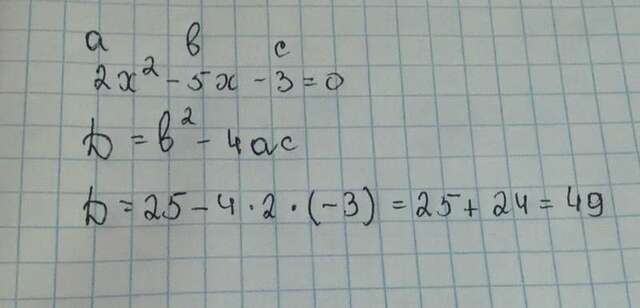 a в c
2x² - 5x - 3 = 0
D = в² - 4ac
D = 25 - 4 · 2 · (-3) = 25 + 24 = 49